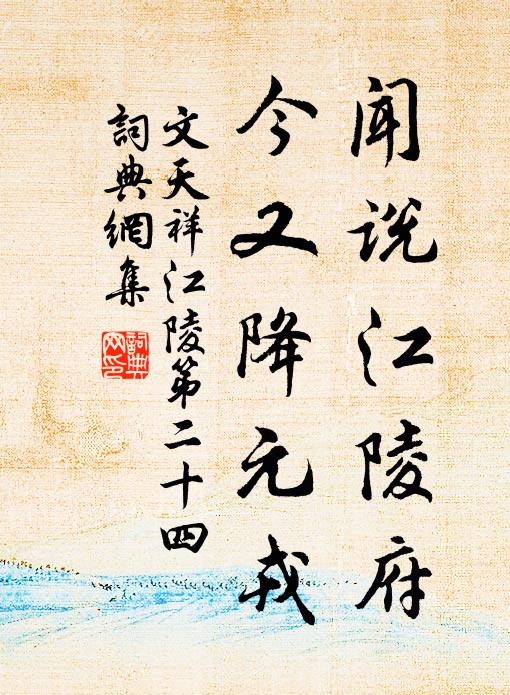 闻说江陵府
今又降元戎
文天祥江陵第二十四
詞典網集
詞典网印